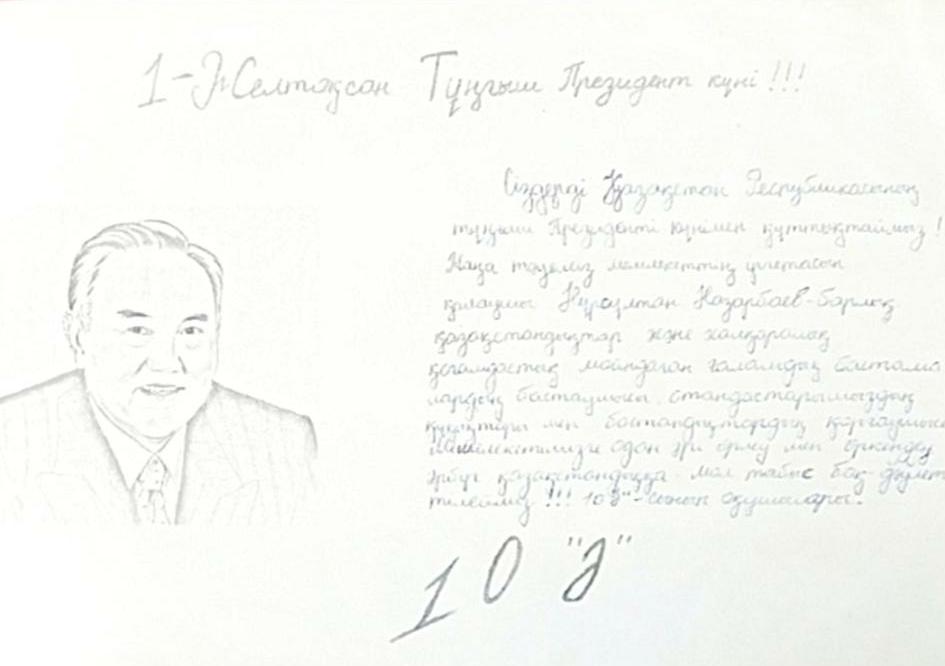 1-Желтоқсан Тұңғыш Президент күні!!!
Сіздерді Қазақстан Республикасының
тұңғыш Президенті күнімен құттықтаймыз!
Жаңа тәуелсіз мемлекеттің іргетасын
қалаушы Нұрсұлтан Назарбаев-барлық
қазақстандықтар және халқаралық
қоғамдастық мойндаған ғаламдық бастама
лардың бастаушысы, отандастарымыздың
құқықтары мен бостандықтардың қорғаушысы
Мемлекетімізге одан әрі өрлеу мен өркендеу,
әрбір қазақстандыққа мол табыс бақ-дәулет
тілейміз!!! 10"Ә"-сынып оқушылары.
10 "Ә"